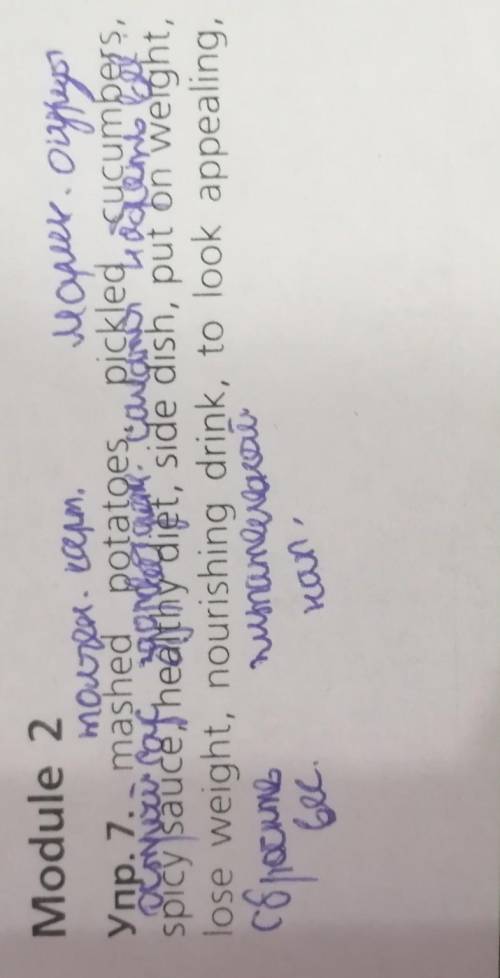 Module 2
толчен. карт. марин. огурцы
Упр. 7. mashed potatoes, pickled cucumbers,
острый здоров. гарнир набрать вес
spicy sauce, healthy diet, side dish, put on weight,
lose weight, nourishing drink, to look appealing,
сбросить питательный
вес. нап.